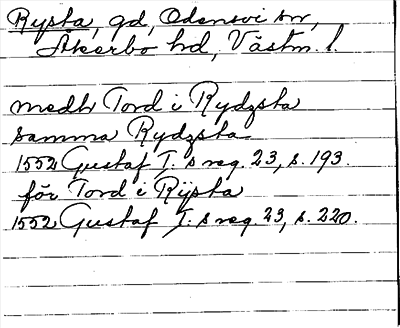 Rysta, gd, Odensvi sn,
Åkerbo hd, Västm. l.
medh Tord i Rydzsta
samma Rydzsta
1552 Gustaf I:s reg. 23, s. 193.
för Tord i Rijsta
1552 Gustaf I:s reg. 23, s. 220.